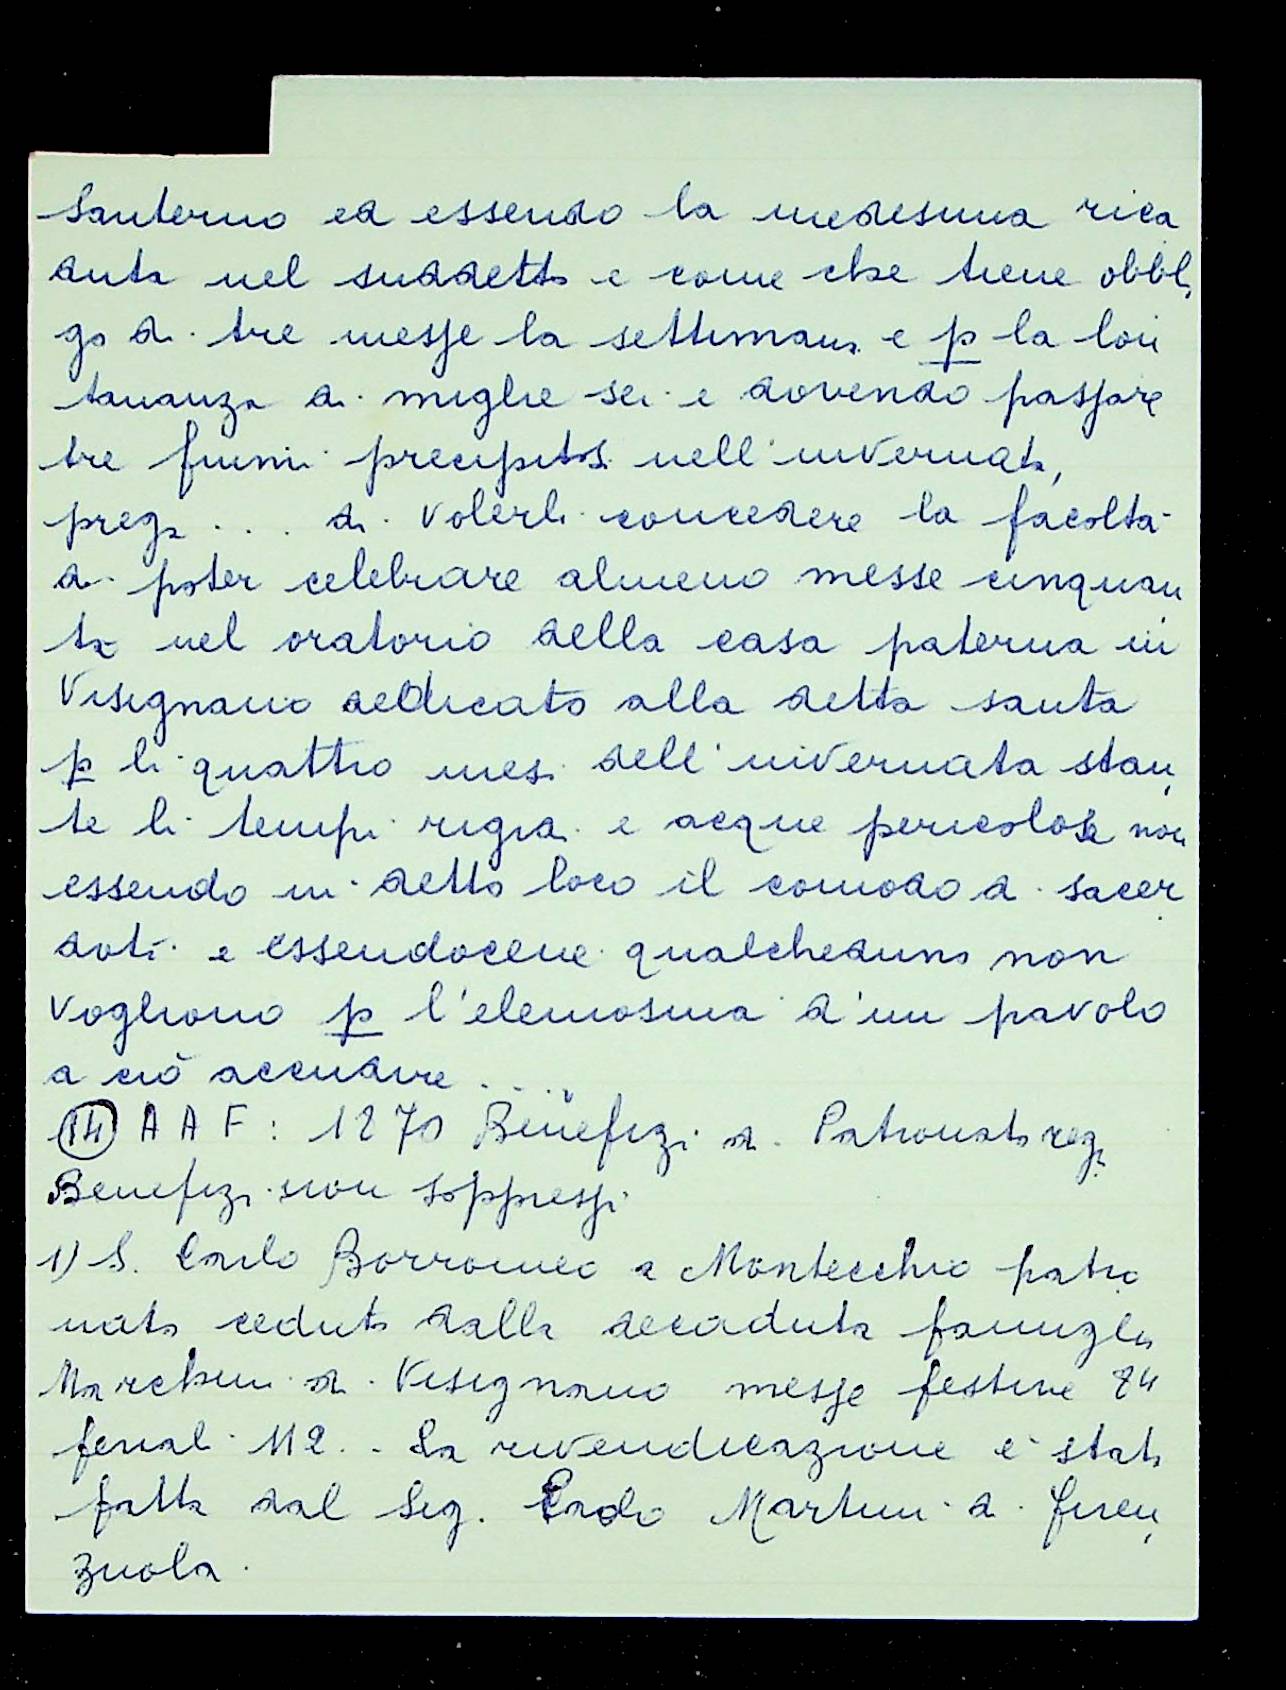 Santerno ed essendo la medesima rica
duta nel suddetto e come che tiene obbli
go di tre messe la settimana e p la lon
tananza di miglie sei e dovendo passare
tre fiumi precipitosi nell'invernata,
prega ... di volerli concedere la facoltà
di poter celebrare almeno messe cinquan
ta nel oratorio della casa paterna in
Visignano dedicato alla detta santa
p li quattro mesi dell'invernata stan
te li tempi rigidi e acque pericolose non
essendo in detto loco il comodo di sacer
doti e essendocene qualcheduno non
vogliono p l'elemosina d'un pavolo
a ciò accudire ....
(14) AAF: 1270 Benefizi di Patronato reg.
Benefizi non soppressi
1) S. Carlo Borromeo a Montecchio patro
nato ceduto dalla decaduta famiglia
Marchini di Visignano messe festive 84
feriali 112. - La rivendicazione è stata
fatta dal Sig. Carlo Martini di Firen
zuola.